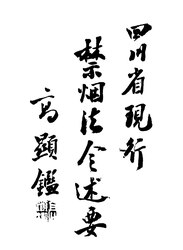 四川省现行
禁烟法令述要
高顕鑑